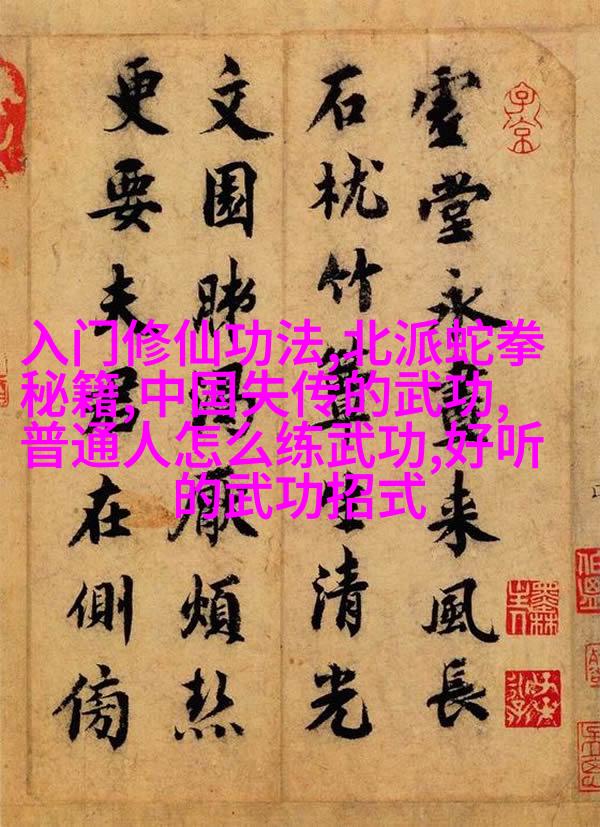 虛堂永晝來風長
石枕竹簟生清光
文園肺渴厭煩熱
更要夫君在側傍
入门修仙功法,北派蛇拳
秘籍,中国失传的武功,
普通人怎么练武功,好听
的武功招式